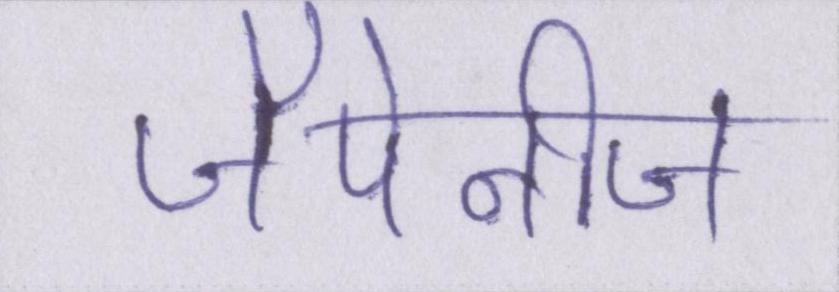 जैपेनीज